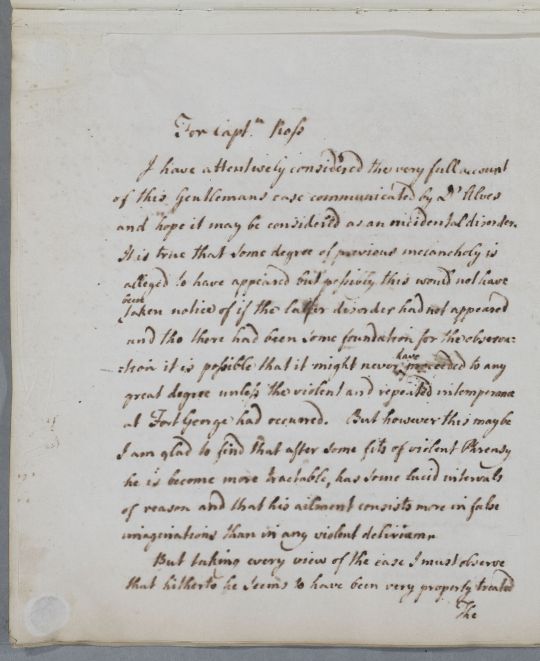 For Capt.n Ross
I have attentively considered the very full account
of this Gentlemans case communicated by Dr Alves
and hope it may be considered as an incidental disorder.
It is true that some degree of previous melancholy is
alleged to have appeared but possibly this would not have
been
taken notice of if the latter disorder had not appeared
and tho there had been some foundation for the observa=
=tion it is possible that it might never have proceeded to any
great degree unless the violent and repeated intemperance
at Fort George had occurred. But however this may be
I am glad to find that after some fits of violent Phrensy
he is become more tractable, has some lucid intervals
of reason and that his ailment consists more in false
imaginations than in any violent delirium.
But taking every view of the case I must observe
that hitherto he seems to have been very properly treated
The